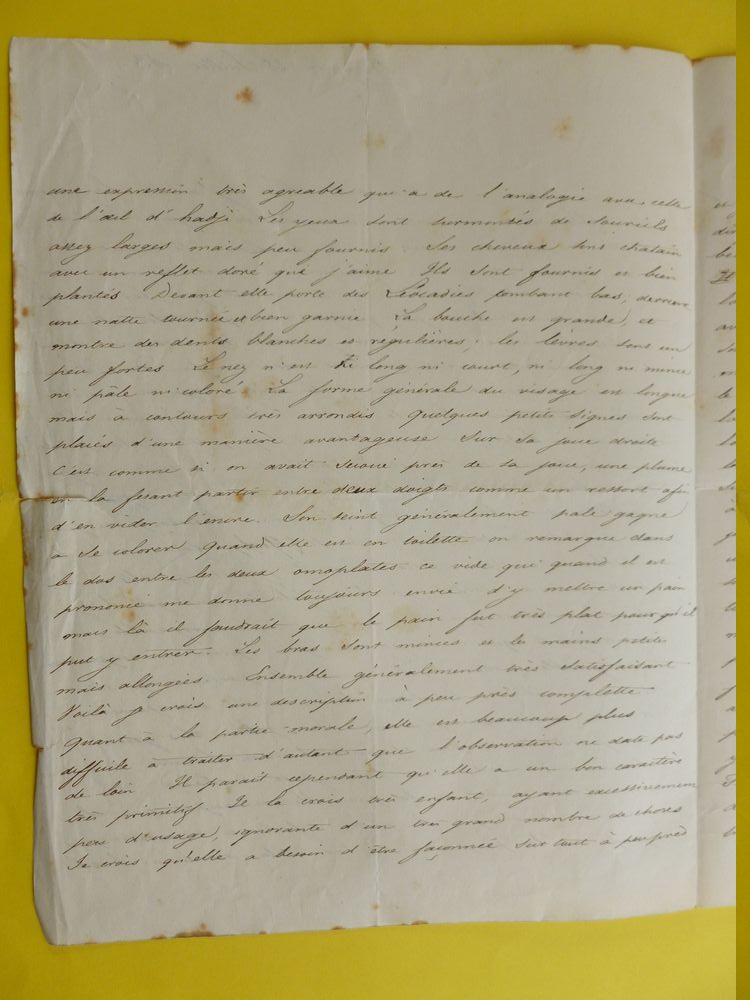 une expression très agreable qui a de l'analogie avec celle
de l'œil d'hadji Les yeux sont surmontés de sourcils
assez larges mais peu fournis. Ses cheveux sont chatain
avec un reflet doré que j'aime Ils sont fournis et bien
plantés Devant elle porte des Léocadies tombant bas, derriere
une natte tournée et bien garnie La bouche est grande, et
montre des dents blanches et régulières; les lèvres sont un
peu fortes Le nez n'est ni long ni court, ni long ni mince
ni pâle ni coloré La forme générale du visage est longue
mais à contours très arrondis Quelques petits signes sont
placés d'une manière avantageuse sur sa joue droite
C'est comme si on avait secoué près de sa joue, une plume
en la fesant partir entre deux doigts comme un ressort afin
d'en vider l'encre. Son teint généralement pale gagne
a se colorer Quand elle est en toilette on remarque dans
le dos entre les deux omoplates ce vide qui quand il est
prononcé me donne toujours envie d'y mettre un pain
mais là il faudrait que le pain fut très plat pour qu'il
put y entrer. Les bras sont minces et les mains petites
mais allongées Ensemble généralement très satisfaisant
Voilà je crois une description à peu près complette
Quant à la partie morale, elle est beaucoup plus
difficile à traiter d'autant que l'observation ne date pas
de loin Il parait cependant qu'elle a un bon caractère
très primitif Je la crois très enfant, ayant excessivement
peu d'usage, ignorante d'un très grand nombre de choses
Je crois qu'elle a besoin d'être façonnée surtout à peu près